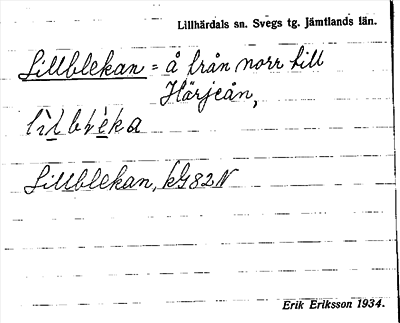 Lillhärdals sn. Svegs tg. Jämtlands län.
Lillblekan = å från norr till
Härjeån,
Lillblekan, kG82N
Erik Eriksson 1934.